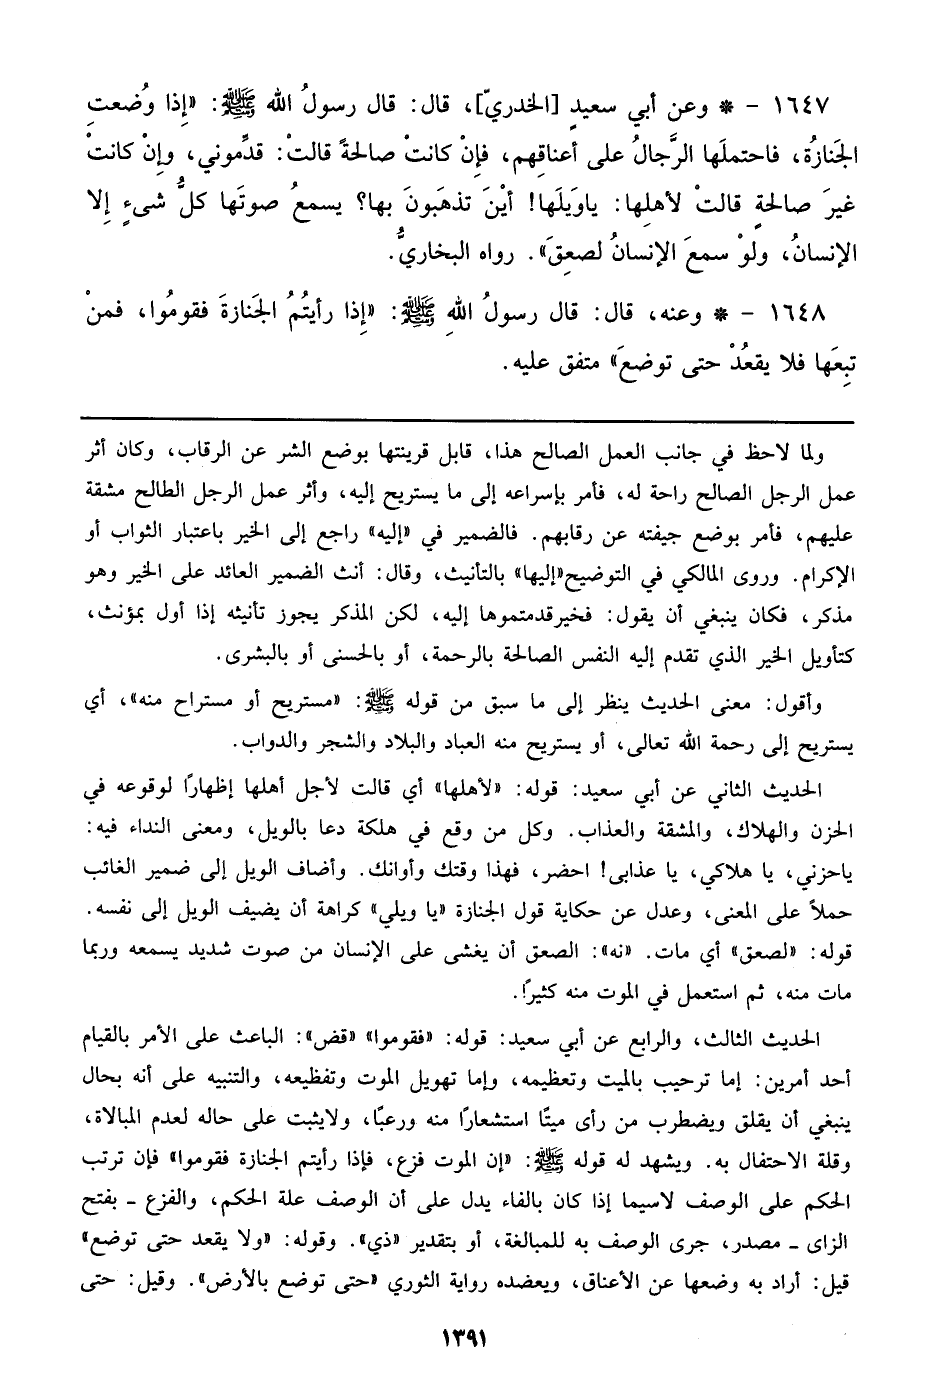 ١٦٤٧ – * وعن أبي سعيدٍ [الخدريّ]، قال: قال رسولُ الله ﷺ: «إِذا وُضعتِ
الجَنازةُ، فاحتملَها الرَّجالُ على أعناقِهم، فإِنْ كانتْ صالحةً قالتْ: قدِّموني، وإِنْ كانتْ
غيرَ صالحةٍ قالتْ لأهلِها: ياوَيلَها! أيْنَ تذهَبونَ بها؟ يسمعُ صوتَها كلُّ شىءٍ إِلا
الإنسانُ، ولوْ سمعَ الإنسانُ لصعِقَ». رواه البخاريُّ.
١٦٤٨ – * وعنه، قال: قال رسولُ اللهِ ﷺ: «إِذا رأيتُمُ الجَنازةَ فقومُوا، فمنْ
تبِعَها فلا يقعُدْ حتى توضعَ» متفق عليه.
ولما لاحظ في جانب العمل الصالح هذا، قابل قرينتها بوضع الشر عن الرقاب، وكان أثر
عمل الرجل الصالح راحة له، فأمر بإسراعه إلى ما يستريح إليه، وأثر عمل الرجل الطالح مشقة
عليهم، فأمر بوضع جيفته عن رقابهم. فالضمير في «إليه» راجع إلى الخير باعتبار الثواب أو
الإكرام. وروى المالكي في التوضيح«إليها» بالتأنيث، وقال: أنث الضمير العائد على الخير وهو
مذكر، فكان ينبغي أن يقول: فخيرقدمتموها إليه، لكن المذكر يجوز تأنيثه إذا أول بمؤنث،
كتأويل الخير الذي تقدم إليه النفس الصالحة بالرحمة، أو بالحسنى أو بالبشرى.
وأقول: معنى الحديث ينظر إلى ما سبق من قوله ﷺ: «مستريح أو مستراح منه»، أي
يستريح إلى رحمة الله تعالى، أو يستريح منه العباد والبلاد والشجر والدواب.
الحديث الثاني عن أبي سعيد: قوله: «لأهلها» أي قالت لأجل أهلها إظهارًا لوقوعه في
الحزن والهلاك، والمشقة والعذاب. وكل من وقع في هلكة دعا بالويل، ومعنى النداء فيه:
ياحزني، يا هلاكي، يا عذابى! احضر، فهذا وقتك وأوانك. وأضاف الويل إلى ضمير الغائب
حملاً على المعنى، وعدل عن حكاية قول الجنازة «يا ويلي» كراهة أن يضيف الويل إلى نفسه.
قوله: «لصعق» أي مات. «نه»: الصعق أن يغشى على الإنسان من صوت شديد يسمعه وربما
مات منه، ثم استعمل في الموت منه كثيرًا.
الحديث الثالث، والرابع عن أبي سعيد: قوله: «فقوموا» «قض»: الباعث على الأمر بالقيام
أحد أمرين: إما ترحيب بالميت وتعظيمه، وإما تهويل الموت وتفظيعه، والتنبيه على أنه بحال
ينبغي أن يقلق ويضطرب من رأى ميتًا استشعارًا منه ورعبًا، ولايثبت على حاله لعدم المبالاة،
وقلة الاحتفال به. ويشهد له قوله ﷺ: «إن الموت فزع، فإذا رأيتم الجنازة فقوموا» فإن ترتب
الحكم على الوصف لاسيما إذا كان بالفاء يدل على أن الوصف علة الحكم، والفزع ـ بفتح
الزاى ـ مصدر، جرى الوصف به للمبالغة، أو بتقدير «ذي». وقوله: «ولا يقعد حتى توضع»
قيل: أراد به وضعها عن الأعناق، ويعضده رواية الثوري «حتى توضع بالأرض». وقيل: حتى
١٣٩١